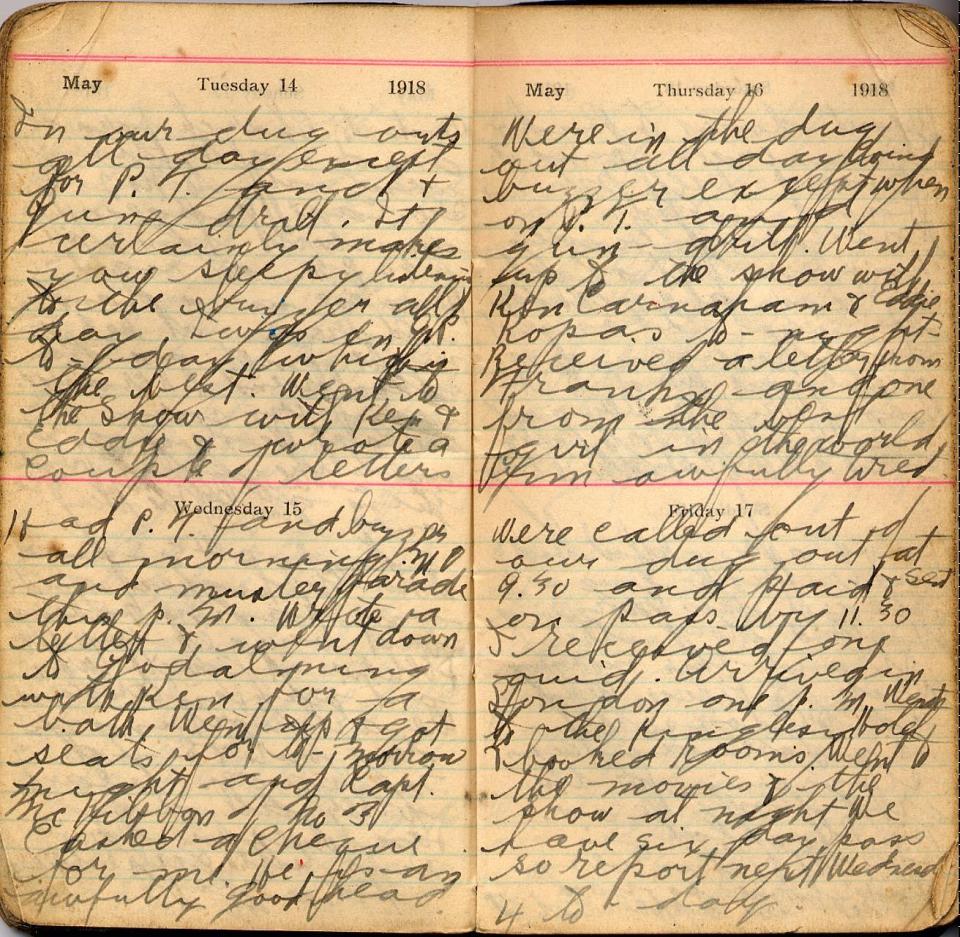 May Tuesday 14 1918
In our dug outs
all day except
for P. T. and +
gun drill. It
certainly makes
you sleepy listening
to the buzzer all
day I was on
to-day which is
the best. Went to
the show with Ken &
Eddie & wrote a
couple of letters
Wednesday 15
Had P. T. and buzzer
all morning.
and muster parade
this p. m. Wrote a
letter & went down
to Godalming
with Ken for a
bath Went up & got
seats for to-morrow
night and Capt.
of No 3
cashed a cheque
for me. He is an
awfully good head
May Thursday 16 1918
Were in the dug
out all day doing
buzzer except when
on P. T. and
gun-drill. Went
up to the show with
Ken Carnaham & Eddie
Ropas to-night-
Received a letter from
and one
from the best
girl in the world
I'm awfully tired
Friday 17
Were called out of
our dug out at
9.30 and paid & sent
on pass by 11.30
I received one
quid. Arrived in
London one p. m. Went
to the Kingsley hotel
& booked rooms. Went to
the movies & the
show at night We
have six day pass
so report next Wednesday
4 to-day.